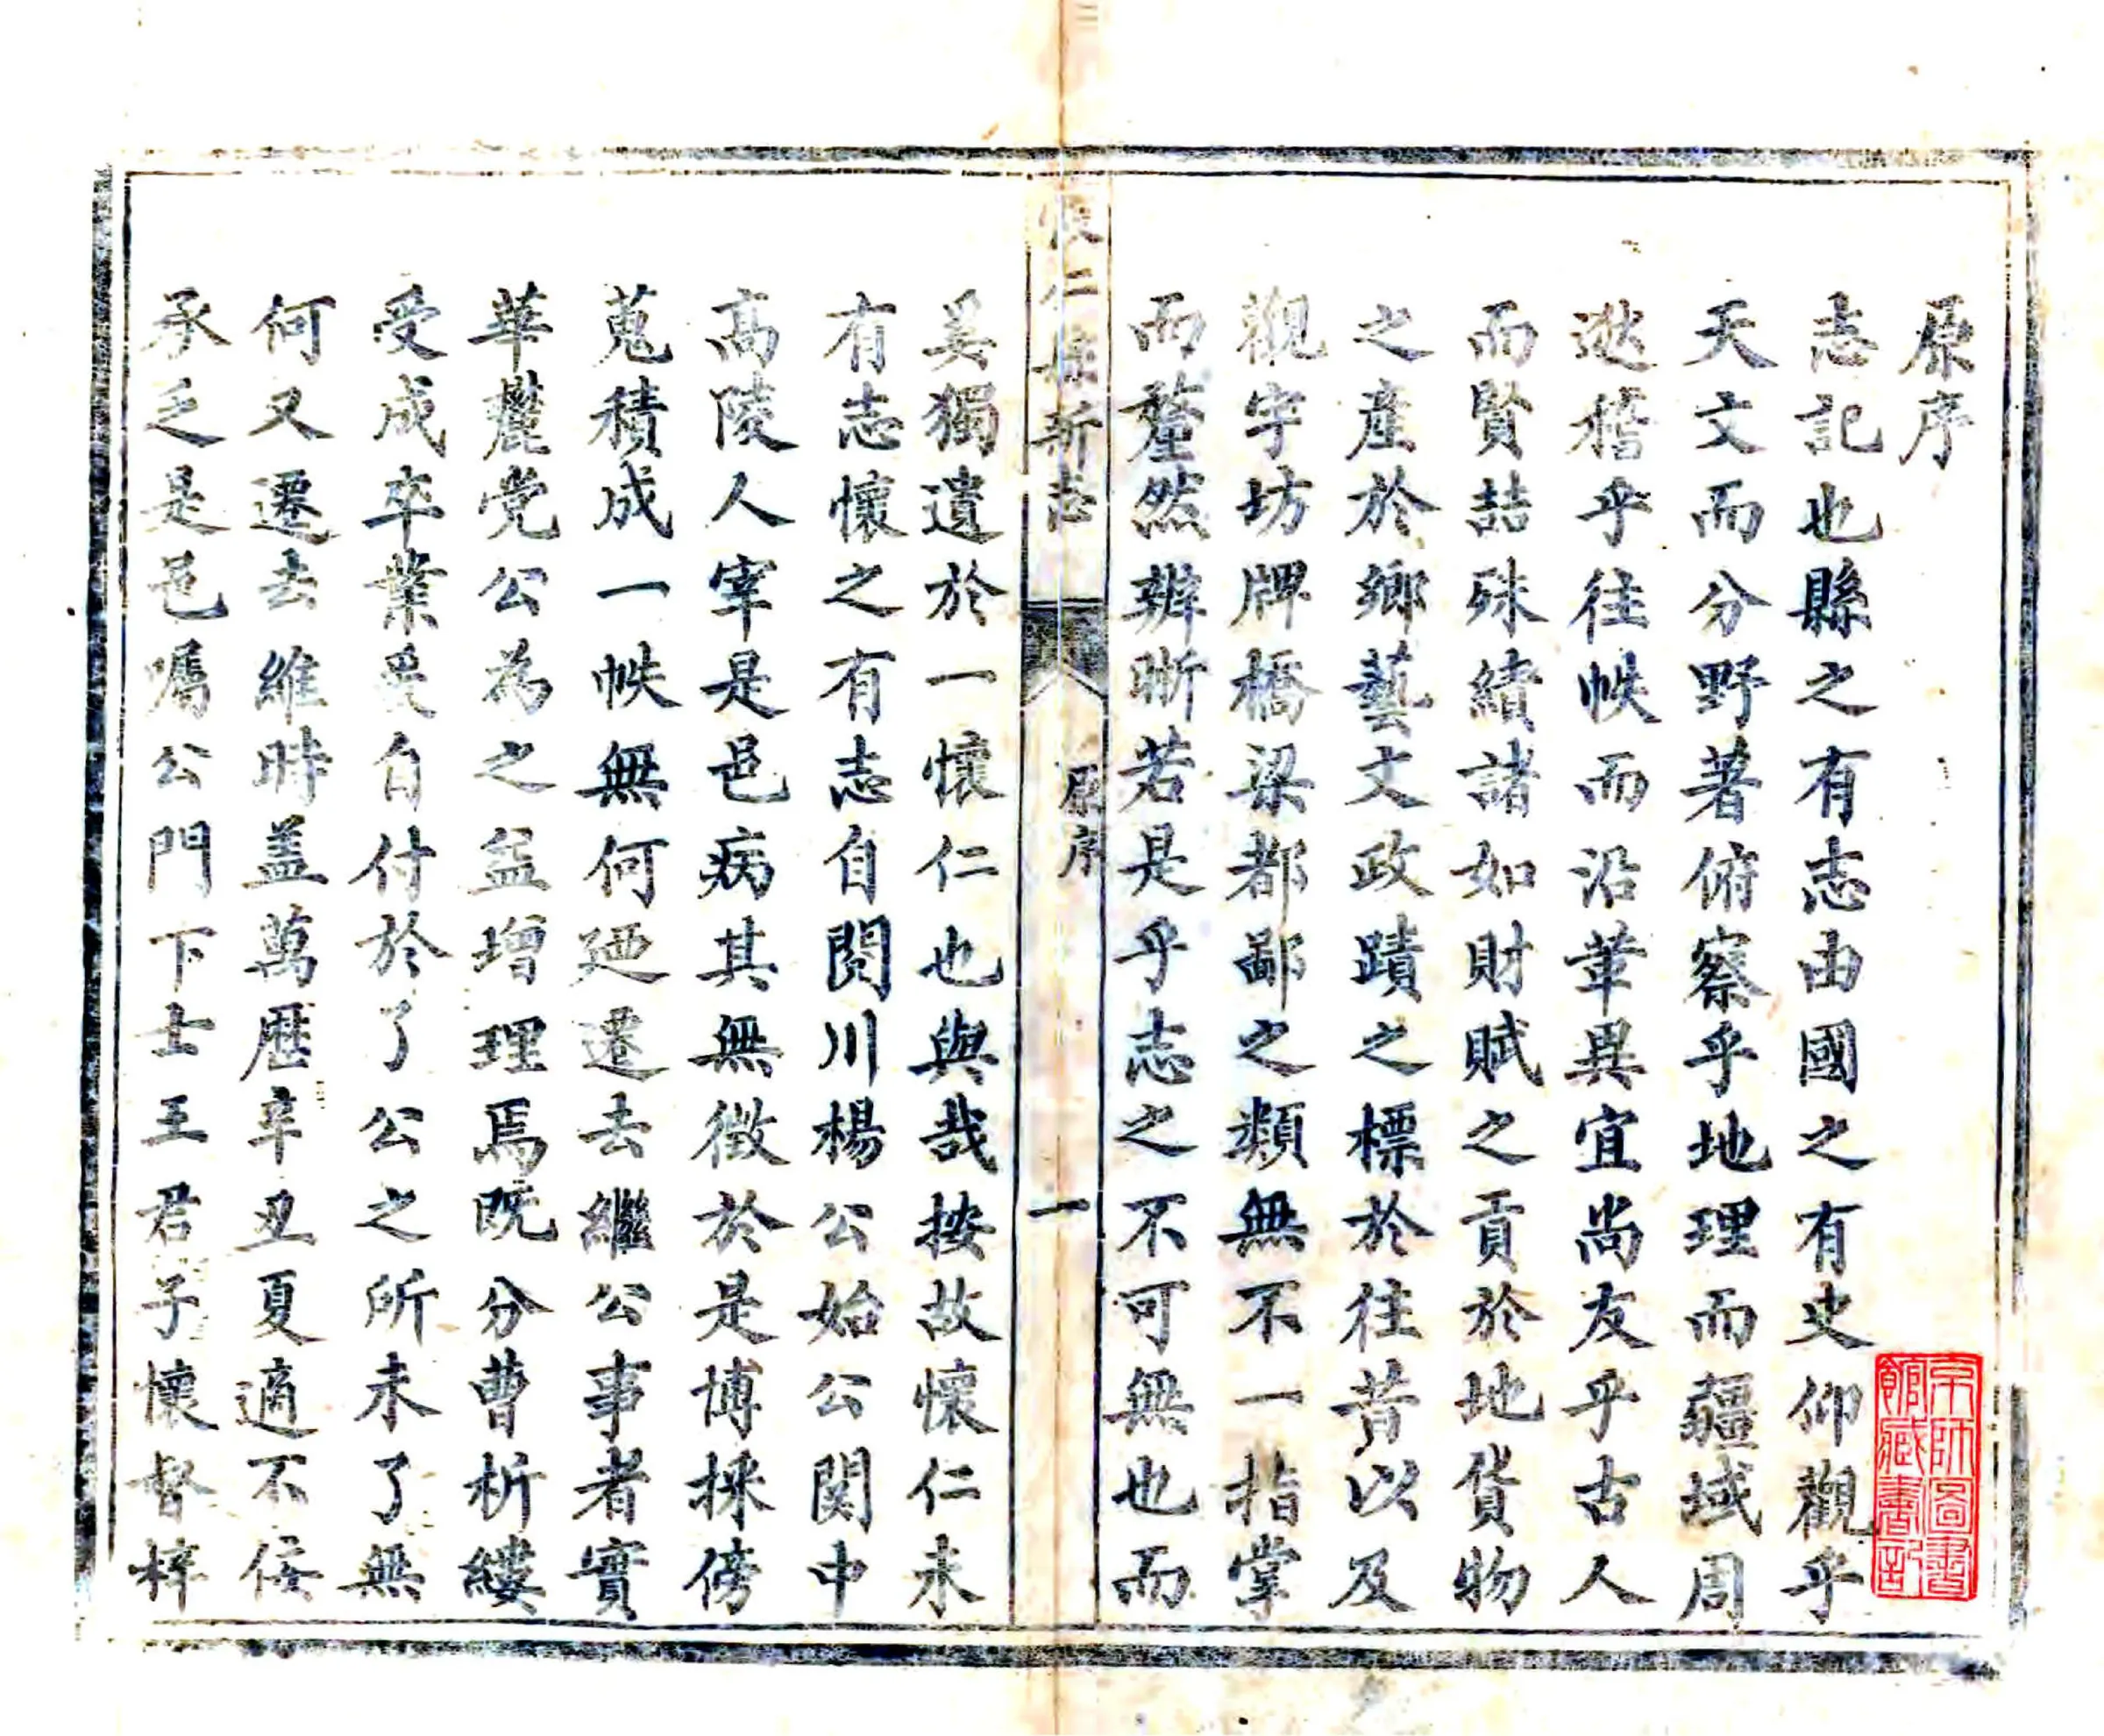 原序
志記也縣之有志由國之有史仰觀乎
天文而分野著俯察乎地理而疆域周
逖稽乎往帙而沿革異宜尚友乎古人
而賢喆殊續諸如財賦之貢於地貨物
之產於鄉藝文政蹟之標於往昔以及
觀宇坊牌橋梁都鄙之類無不一指掌
而釐然辦晰若是乎志之不可無也而
奚獨遺於一懷仁也與哉按故懷仁未
有志懷之有志自閿川楊公始公関中
高陵人宰是邑病其無徵於是博採傍
蒐積成一帙無何廼遷去繼公事者實
華麓党公為之益增理焉既分曹析縷
受成卒業爰自付於了公之所未了無
何又遷去維時盖萬歷辛丑夏適不佞
承乏是邑囑公門下士王君子懷督梓
懷仁縣新志
原序
一
京師圖書
館藏書記